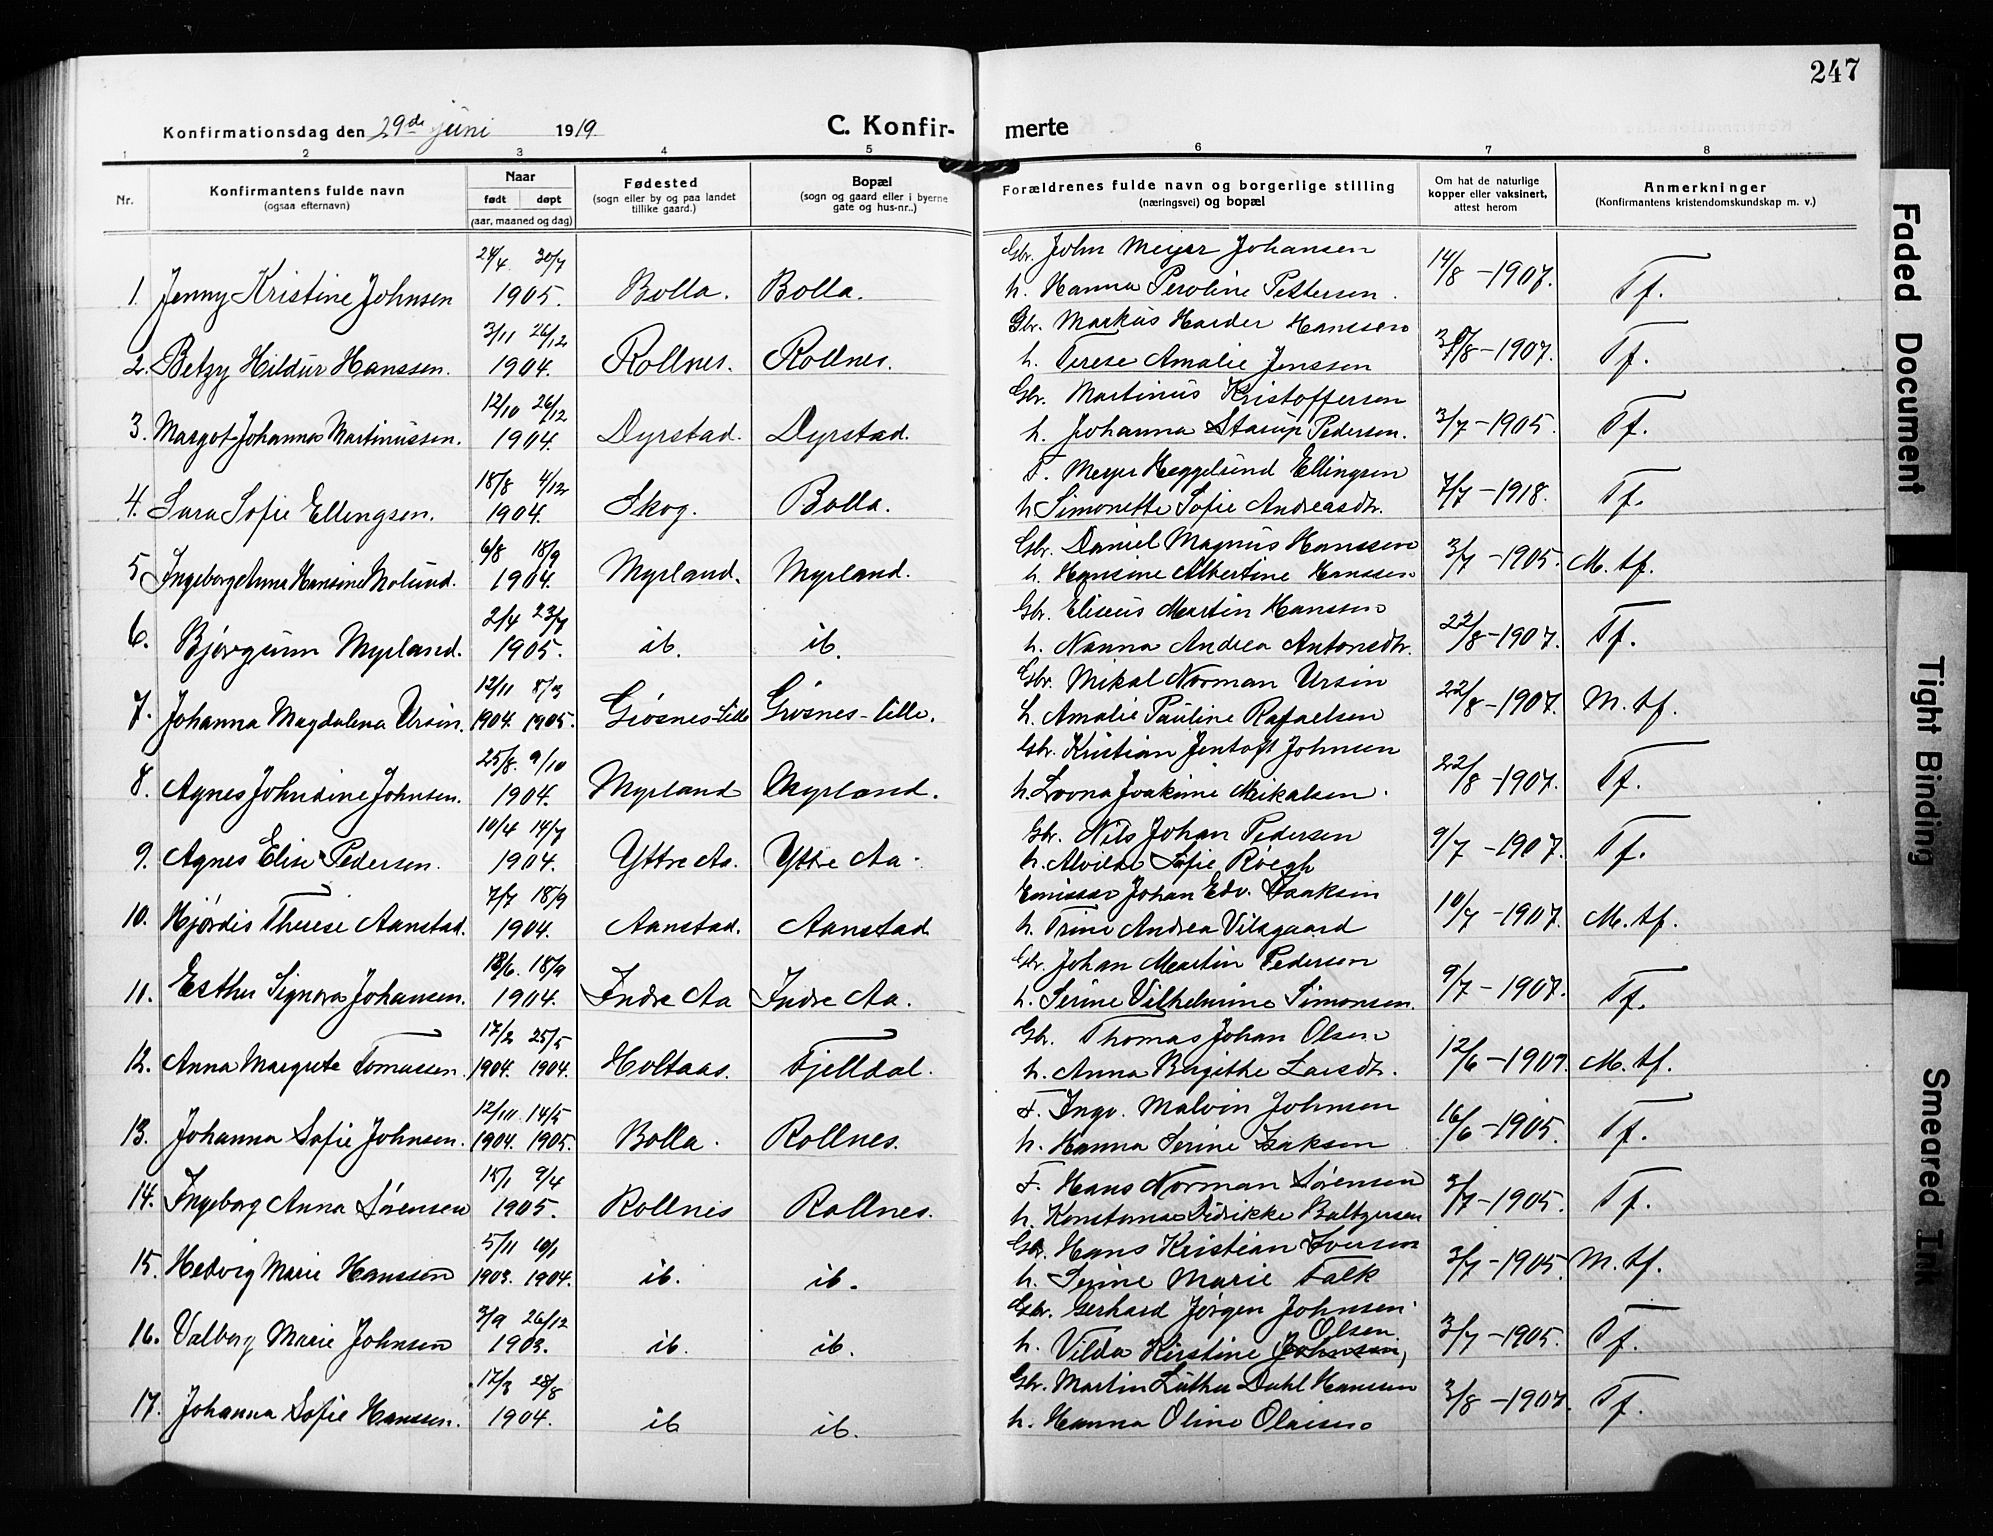 247
Konfirmationsdag den 29de juni 1919
C. Konfir- merte
1 2 3 4 5 6 7 8
Nr.
Konfirmantens fulde navn
(ogsaa efternavn)
Naar
født døpt
(aar, maaned og dag)
Fødested
(sogn eller by og paa landet
tillike gaard.)
Bopæl
(sogn og gaard eller i byerne
gate og hus-nr..)
Forældrenes fulde navn og borgerlige stilling
(næringsvei) og bopæl
Om hat de naturlige
kopper eller vaksinert,
attest herom
Anmerkninger
(Konfirmantens kristendomskundskap m. v.)
24/4 30/7 Gbr. John Meyer Johansen 14/8 - 1907.
1. Jenny Kristine Johnsen 1905. Bolla. Bolla. h. Hanna Peroline Pettersen. Tf.
3/11 26/12 Gbr. Markus Harder Hanssen
2. Betzy Hildur Hanssen. 1904. Rollnes. Rollnes. h. Terese Amalie Jenssen /8 - 1907. Tf.
12/10 26/12 Gbr. Martinus Kristoffersen
3. Margot Johanna Martinussen. 1904. Dyrstad. Dyrstad. h. Johanna Starup Pedersen. 3/7 - 1905. Tf.
18/8 4/12 F. Meyer Heggelund Ellingsen
4. Sara Sofie Ellingsen. 1904. Skog. Bolla. h. Simonette Sofie Andreasdtr. 7/7 - 1918. Tf.
6/8 18/9 Gbr. Daniel Magnus Hanssen
5 Ingeborg Anna Hansine Molund. 1904. Myrland. Myrland. h. Hansine Albertine Hanssen 3/7 - 1905. M. tf.
2/4 23/7 Gbr. Eliseus Martin Hanssen
6. Bjørgunn Myrland. 1905. ib. ib. h. Nanna Andrea Antonsdtr. 22/8 - 1907. Tf.
12/11 8/3 Gbr. Mikal Norman Ursin
7. Johanna Magdalena Ursin. 1904. 1905. Grøsnes-lille Grøsnes-lille. h. Amalie Pauline Rafaelsen 22/8 - 1907. M. tf.
25/8. 9/10 Gbr. Kristian Jentoft Johnsen
8. Agnes Johndine Johnsen. 1904. Myrland Myrland. h. Lovna Joakime Mikalsen. 22/8 - 1907. Tf.
10/4 14/7 Gbr. Nils Johan Pedersen
9. Agnes Elise Pedersen. 1904. Yttre Aa. Yttre Aa. h. Alvilde Sofie Røegh 9/7 - 1907. Tf.
7/7 18/9 Emissær Johan Edv. Isaksen
10. Hjørdis Therese Aanstad. 1904. Aanstad. Aanstad. h. Trine Andrea Vilsgaard 10/7 - 1907. M. tf.
18/6. 18/9 Gbr. Johan Martin Pedersen
11. Esther Signora Johansen. 1904. Indre Aa Indre Aa. h. Serine Vilhelmine Simonsen. 9/7 - 1907. Tf.
17/2 25/5 Gbr. Thomas Johan Olsen
12. Anna Margrete Tomassen. 1904. 1904. Holtaas. Fjelldal. h. Anna Birgithe Larsdtr. 12/6 - 1907. M. tf.
12/10. 14/5 F. Ingv. Malvin Johnsen
13. Johanna Sofie Johnsen. 1904. 1905. Bolla. Rollnes. h. Hanna Serine Isaksen 16/6 - 1905. Tf.
15/1 9/4 F. Hans Norman Sørensen
14. Ingeborg Anna Sørensen 1905. Rollnes Rollnes. h. Konstanse Didrikke Baltzersen 3/7 - 1905. Tf.
5/11 10/1 Gbr. Hans Kristian Iversen
15. Hedvig Marie Hanssen 1903. 1904. ib. ib. h. Serine Marie Falk 3/7 - 1905 M. tf.
3/9 26/12 Gbr. Gerhard Jørgen Johnsen.
Olsen
16. Valborg Marie Johnsen 1903. ib. ib. h. Vilda Kirstine Johnsen, 3/7 - 1905. Tf.
17/3 28/8 Gbr. Martin Luther Dahl Hanssen
17. Johanna Sofie Hanssen. 1904. ib ib. h. Hanna Oline Olaisen 3/8 - 1907. Tf.
Faded Document
Tight Binding
Smeared Ink